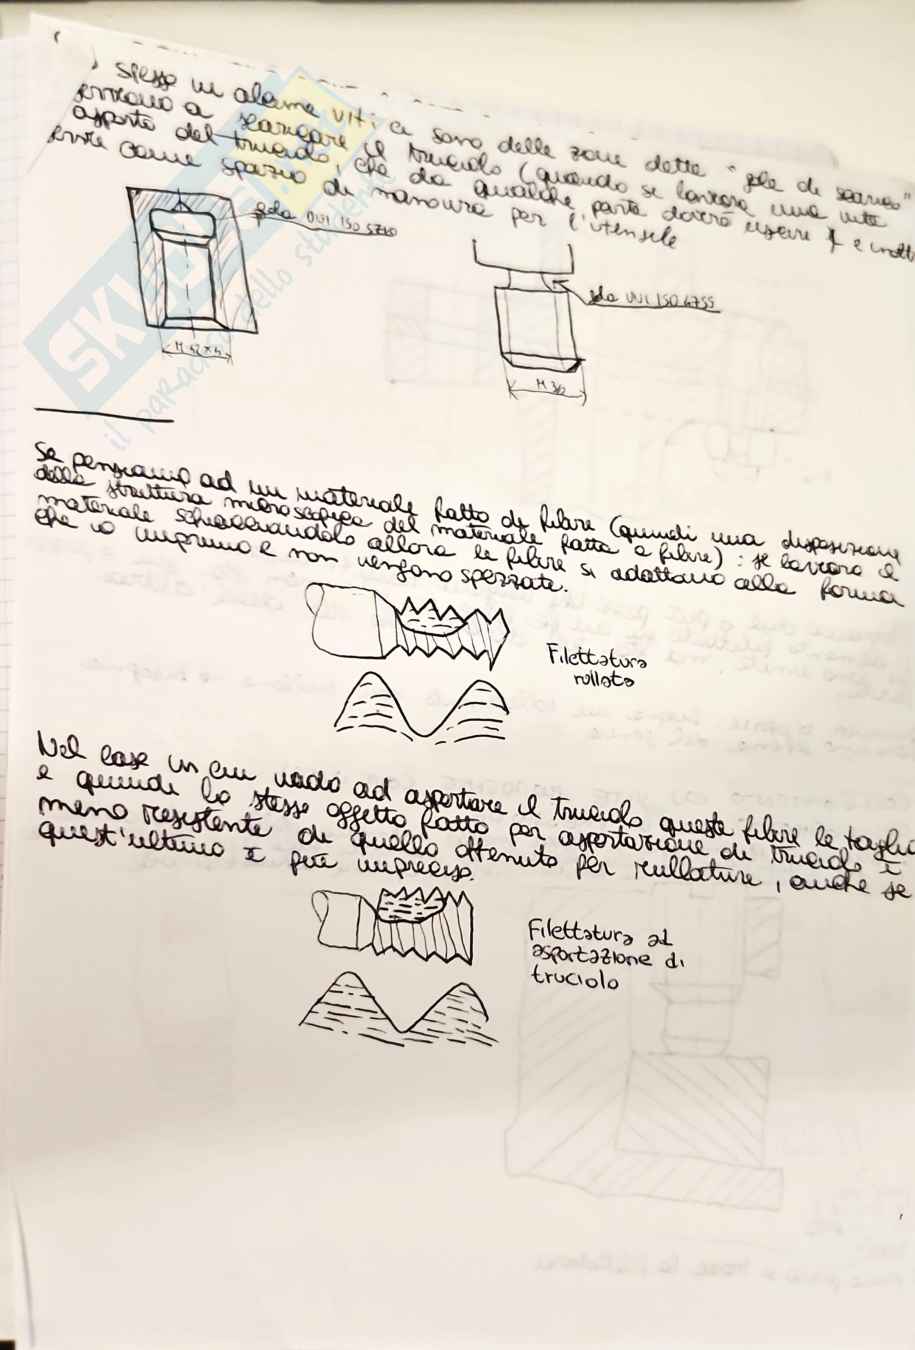 Spesso in alcune viti ci sono delle zone dette "gole di scarico"
servono a scaricare il truciolo (quando si lavora una vite
asporto del truciolo, che da qualche parte dovrà uscire) e inoltre
serve come spazio di manovra per l'utensile
gola UNI ISO 5710
gola UNI ISO 4755
M 42 × 4
M 32
Se pensiamo ad un materiale fatto di fibre (quindi una disposizione
della struttura microscopica del materiale fatta a fibre): se lavoro il
materiale schiacciandolo allora le fibre si adattano alla forma
che io imprimo e non vengono spezzate.
Filettatura
rullata
Nel caso in cui vado ad asportare il truciolo queste fibre le taglio
e quindi lo stesso oggetto fatto per asportazione di truciolo è
meno resistente di quello ottenuto per rullatura, anche se
quest'ultimo è più impreciso.
Filettatura ad
asportazione di
truciolo
SKUOLA
il paradiso dello studente